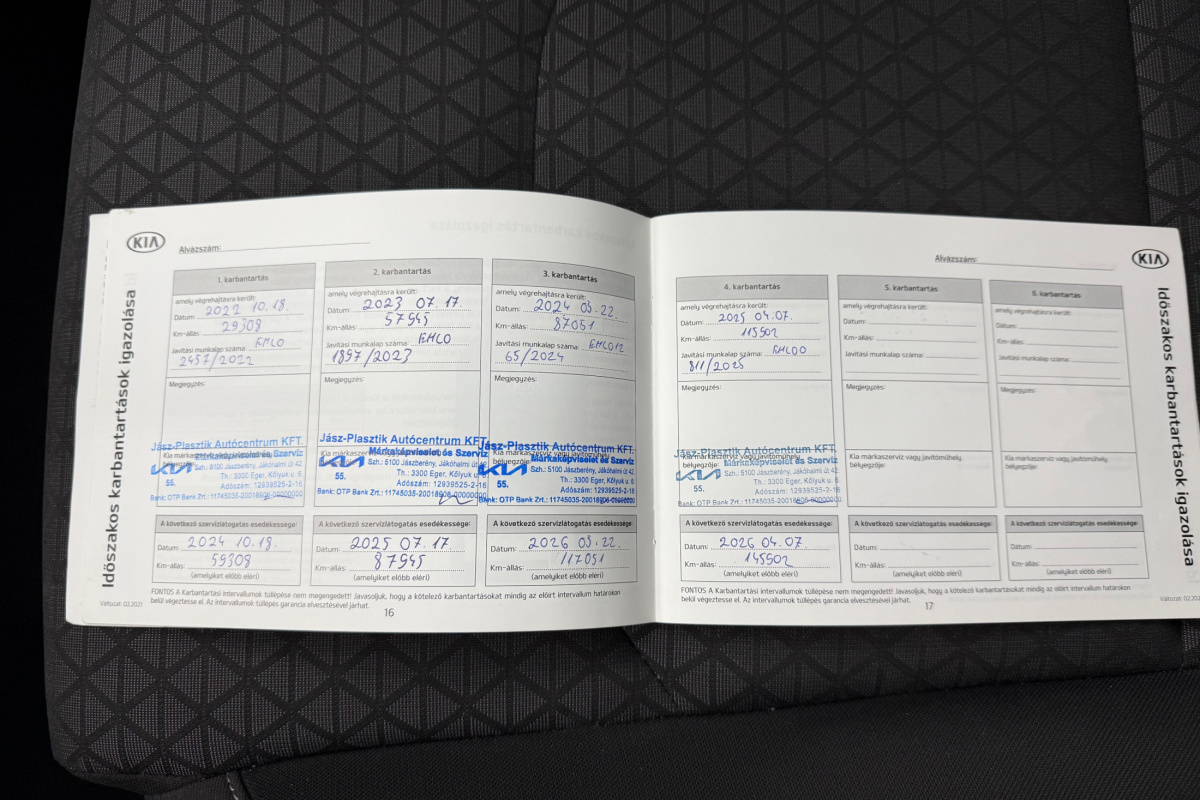 KIA
Alvázszám:
Időszakos karbantartások igazolása
1. karbantartás
amely végrehajtásra került:
Dátum: 2022 10.18.
Km-állás: 29309
Javítási munkalap száma: EMLO
2457/2022
Megjegyzés:
Jász-Plasztik Autócentrum KFT.
Márkaképviselet és Szerviz
KIA Szh.: 5100 Jászberény, Jákóhalmi út 42
Th.: 3300 Eger, Kőlyuk u. 6.
55. Adószám: 12939525-2-16
Bank: OTP Bank Zrt.: 11745035-20018606-00000000
A következő szervizlátogatás esedékessége:
Dátum: 2024 10.18.
Km-állás: 59309
(amelyiket előbb eléri)
2. karbantartás
amely végrehajtásra került:
Dátum: 2023 07.17.
Km-állás: 57945
Javítási munkalap száma: EMLO
1897/2023
Megjegyzés:
Jász-Plasztik Autócentrum KFT.
Márkaképviselet és Szerviz
KIA Szh.: 5100 Jászberény, Jákóhalmi út 42
Th.: 3300 Eger, Kőlyuk u. 6.
55. Adószám: 12939525-2-16
Bank: OTP Bank Zrt.: 11745035-20018606-00000000
A következő szervizlátogatás esedékessége:
Dátum: 2025 07.17
Km-állás: 87945
(amelyiket előbb eléri)
3. karbantartás
amely végrehajtásra került:
Dátum: 2024 03.22.
Km-állás: 87051
Javítási munkalap száma: EMLO12
65/2024
Megjegyzés:
Jász-Plasztik Autócentrum KFT.
Márkaképviselet és Szerviz
KIA Szh.: 5100 Jászberény, Jákóhalmi út 42.
Th.: 3300 Eger, Kőlyuk u. 6.
55. Adószám: 12939525-2-16
Bank: OTP Bank Zrt.: 11745035-20018606-00000000
A következő szervizlátogatás esedékessége:
Dátum: 2026 03.22.
Km-állás: 117051
(amelyiket előbb eléri)
FONTOS A Karbantartási intervallumok túllépése nem megengedett! Javasoljuk, hogy a kötelező karbantartásokat mindig az előírt intervallum határokon
belül végeztesse el. Az intervallumok túllépés garancia elvesztésével járhat.
Változat: 02.2021
16
Alvázszám:
KIA
Időszakos karbantartások igazolása
4. karbantartás
amely végrehajtásra került:
Dátum: 2025 04.07.
Km-állás: 115502
Javítási munkalap száma: EMLOO
811/2025
Megjegyzés:
Kia márkaszerviz vagy javítóműhely
bélyegzője:
Jász-Plasztik Autócentrum KFT.
Márkaképviselet és Szerviz
KIA Szh.: 5100 Jászberény, Jákóhalmi út 42.
Th.: 3300 Eger, Kőlyuk u. 6.
55. Adószám: 12939525-2-16
Bank: OTP Bank Zrt.: 11745035-20018606-00000000
A következő szervizlátogatás esedékessége:
Dátum: 2026 04.07.
Km-állás: 145502
(amelyiket előbb eléri)
5. karbantartás
amely végrehajtásra került:
Dátum:
Km-állás:
Javítási munkalap száma:
Megjegyzés:
Kia márkaszerviz vagy javítóműhely
bélyegzője:
A következő szervizlátogatás esedékessége:
Dátum:
Km-állás:
(amelyiket előbb eléri)
6. karbantartás
amely végrehajtásra került:
Dátum:
Km-állás:
Javítási munkalap száma:
Megjegyzés:
Kia márkaszerviz vagy javítóműhely
bélyegzője:
A következő szervizlátogatás esedékessége:
Dátum:
Km-állás:
(amelyiket előbb eléri)
FONTOS A Karbantartási intervallumok túllépése nem megengedett! Javasoljuk, hogy a kötelező karbantartásokat mindig az előírt intervallum határokon
belül végeztesse el. Az intervallumok túllépés garancia elvesztésével járhat.
17
Változat: 02.202